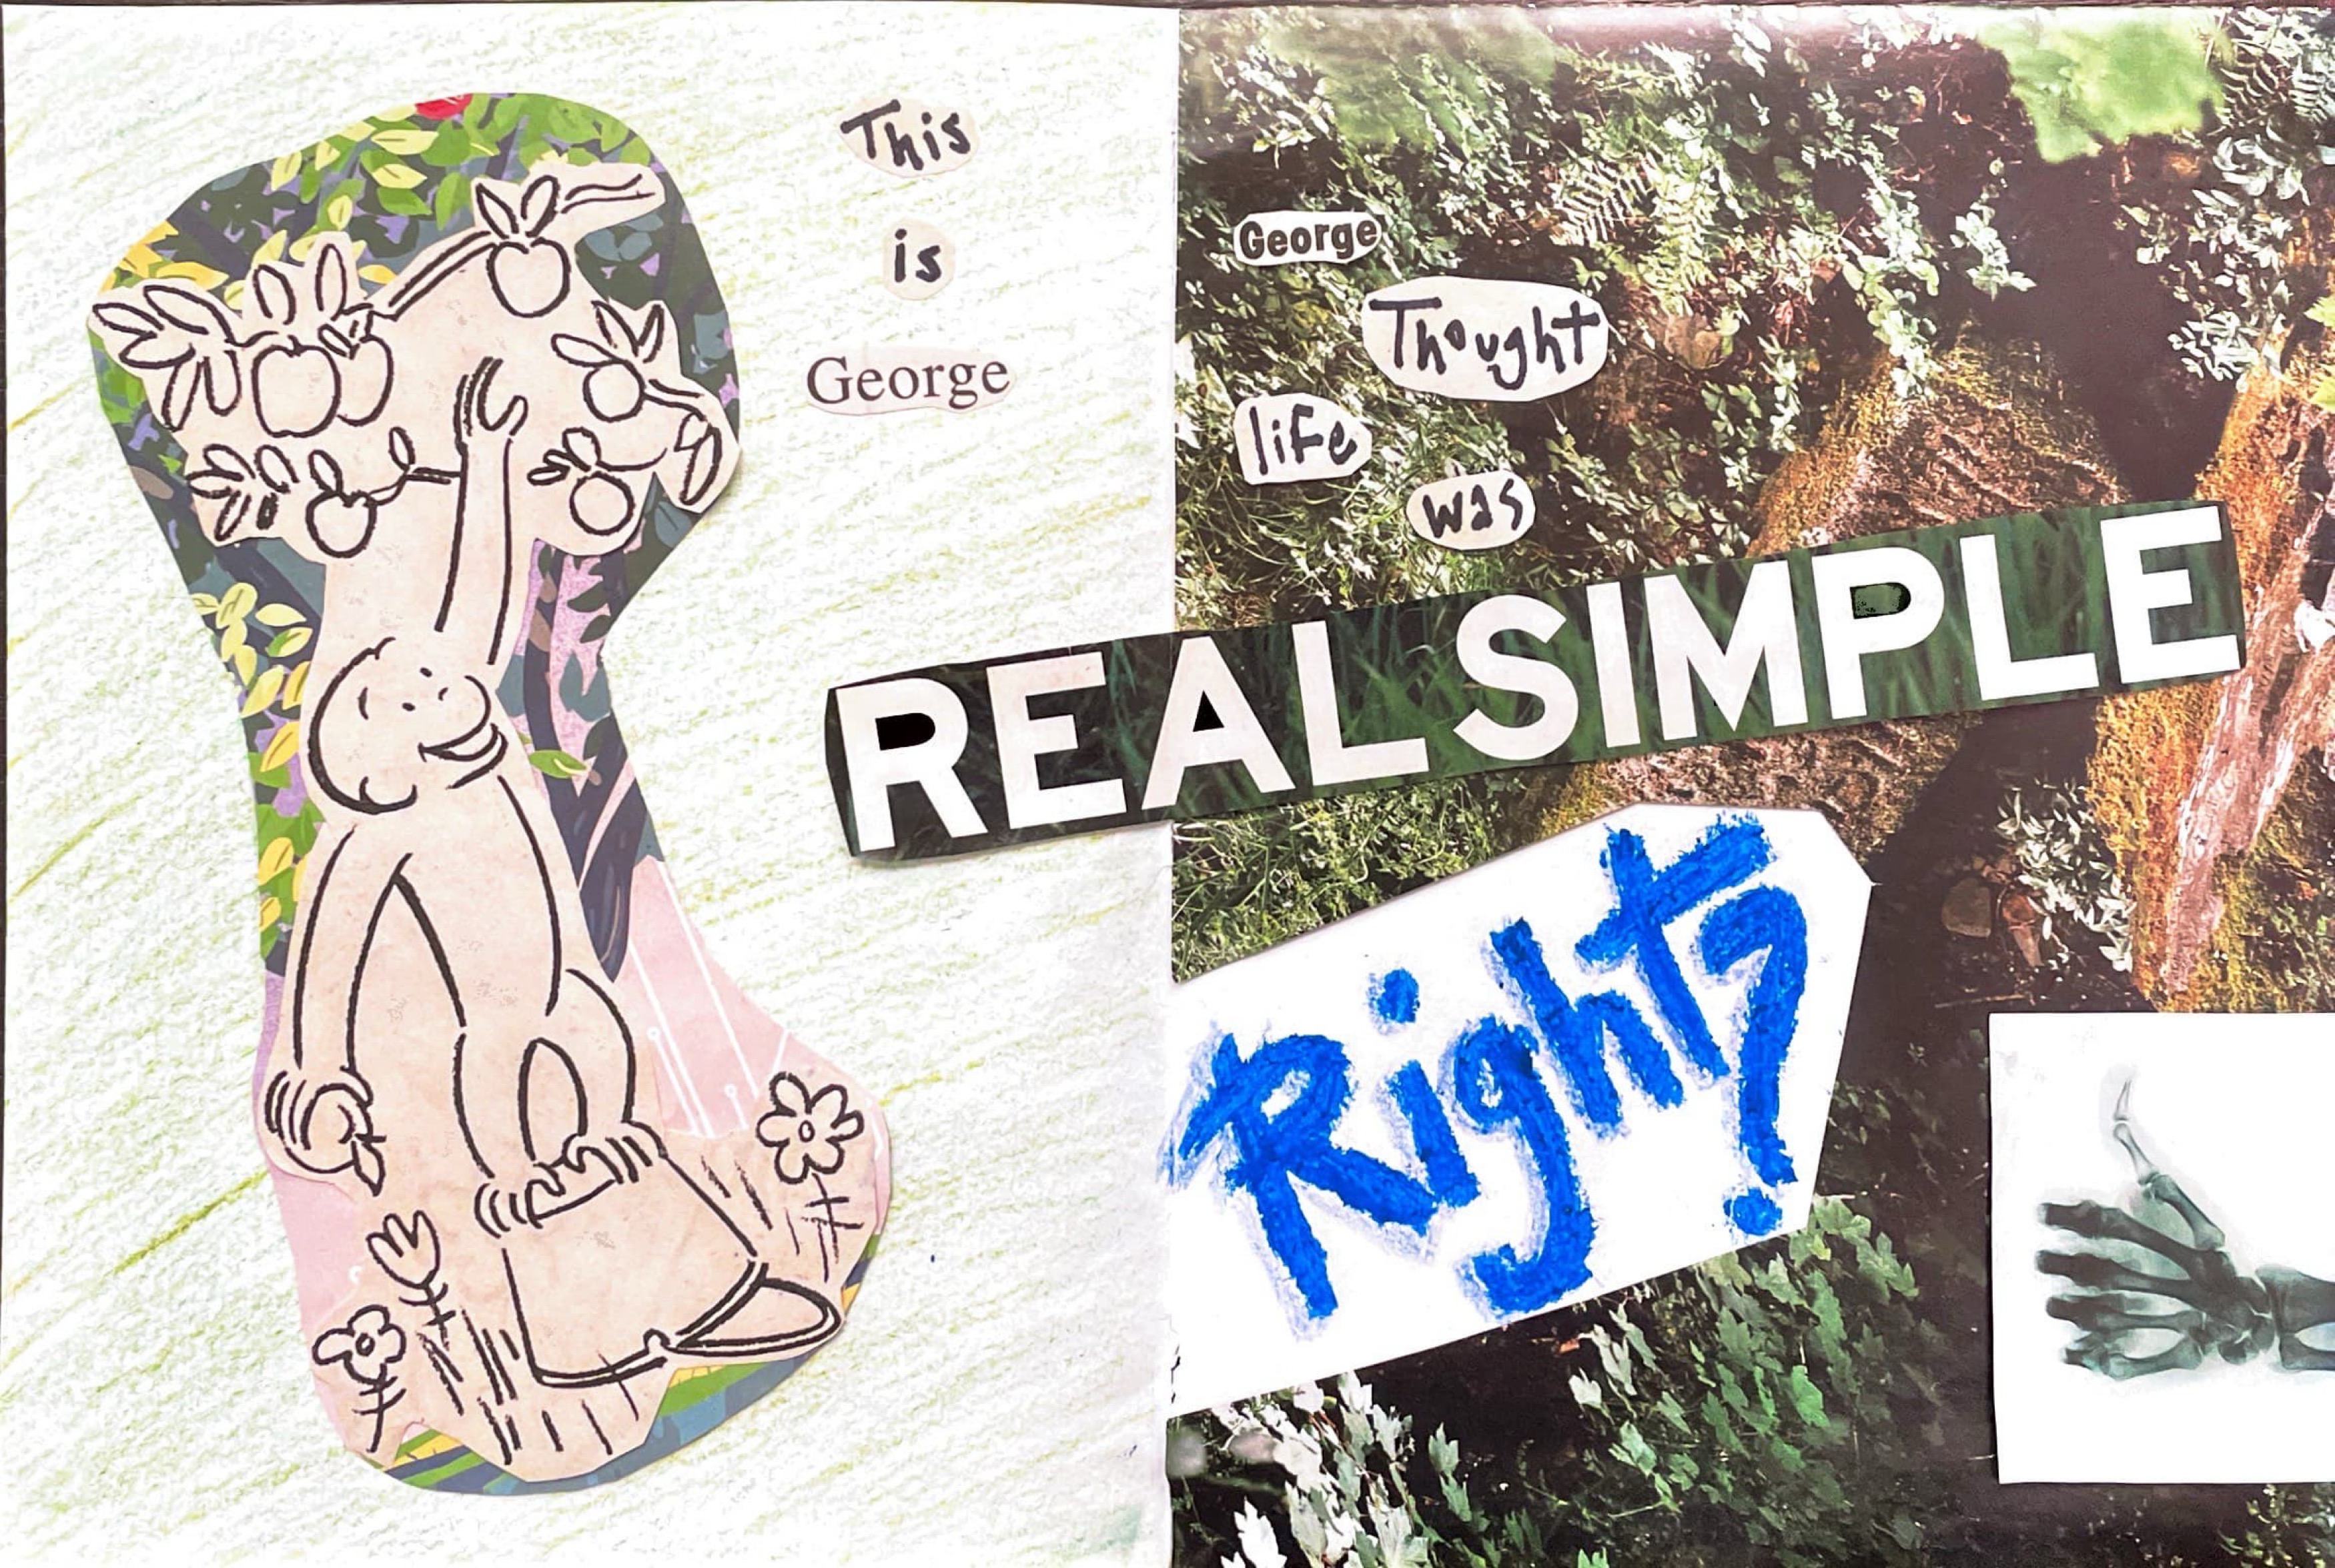 This
is
George
George
Thought
life
was
REAL SIMPLE
Right?